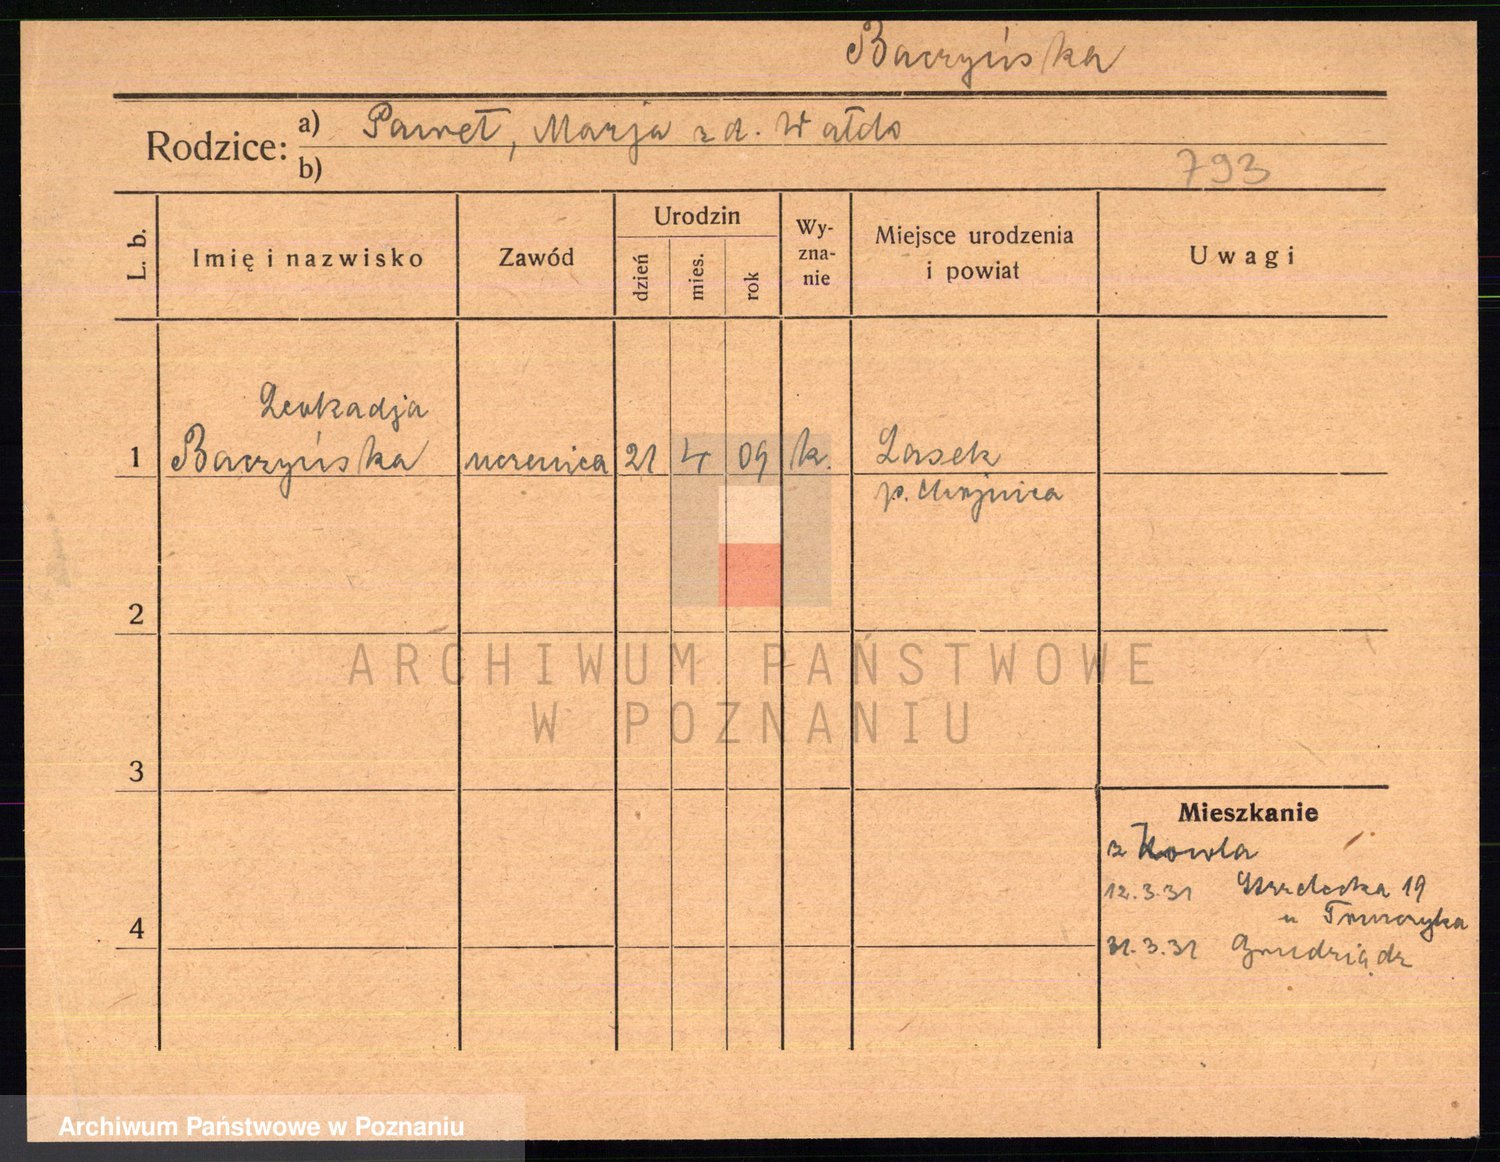 Baczyńska
Rodzice: a) Paweł, Marja z d. Wałdo
b)
793
L. b.
Imię i nazwisko
Zawód
Urodzin
dzień
mies.
rok
Wy-
zna-
nie
Miejsce urodzenia
i powiat
Uwagi
Leokadja
1 Baczyńska uczenica 21 4 09 k. Lasek
p. Chojnica
2
ARCHIWUM PAŃSTWOWE
W POZNANIU
3
Mieszkanie
z Kowla
12.3.31 Strzelecka 19
u
4
31.3.31 Grudziądz
Archiwum Państwowe w Poznaniu